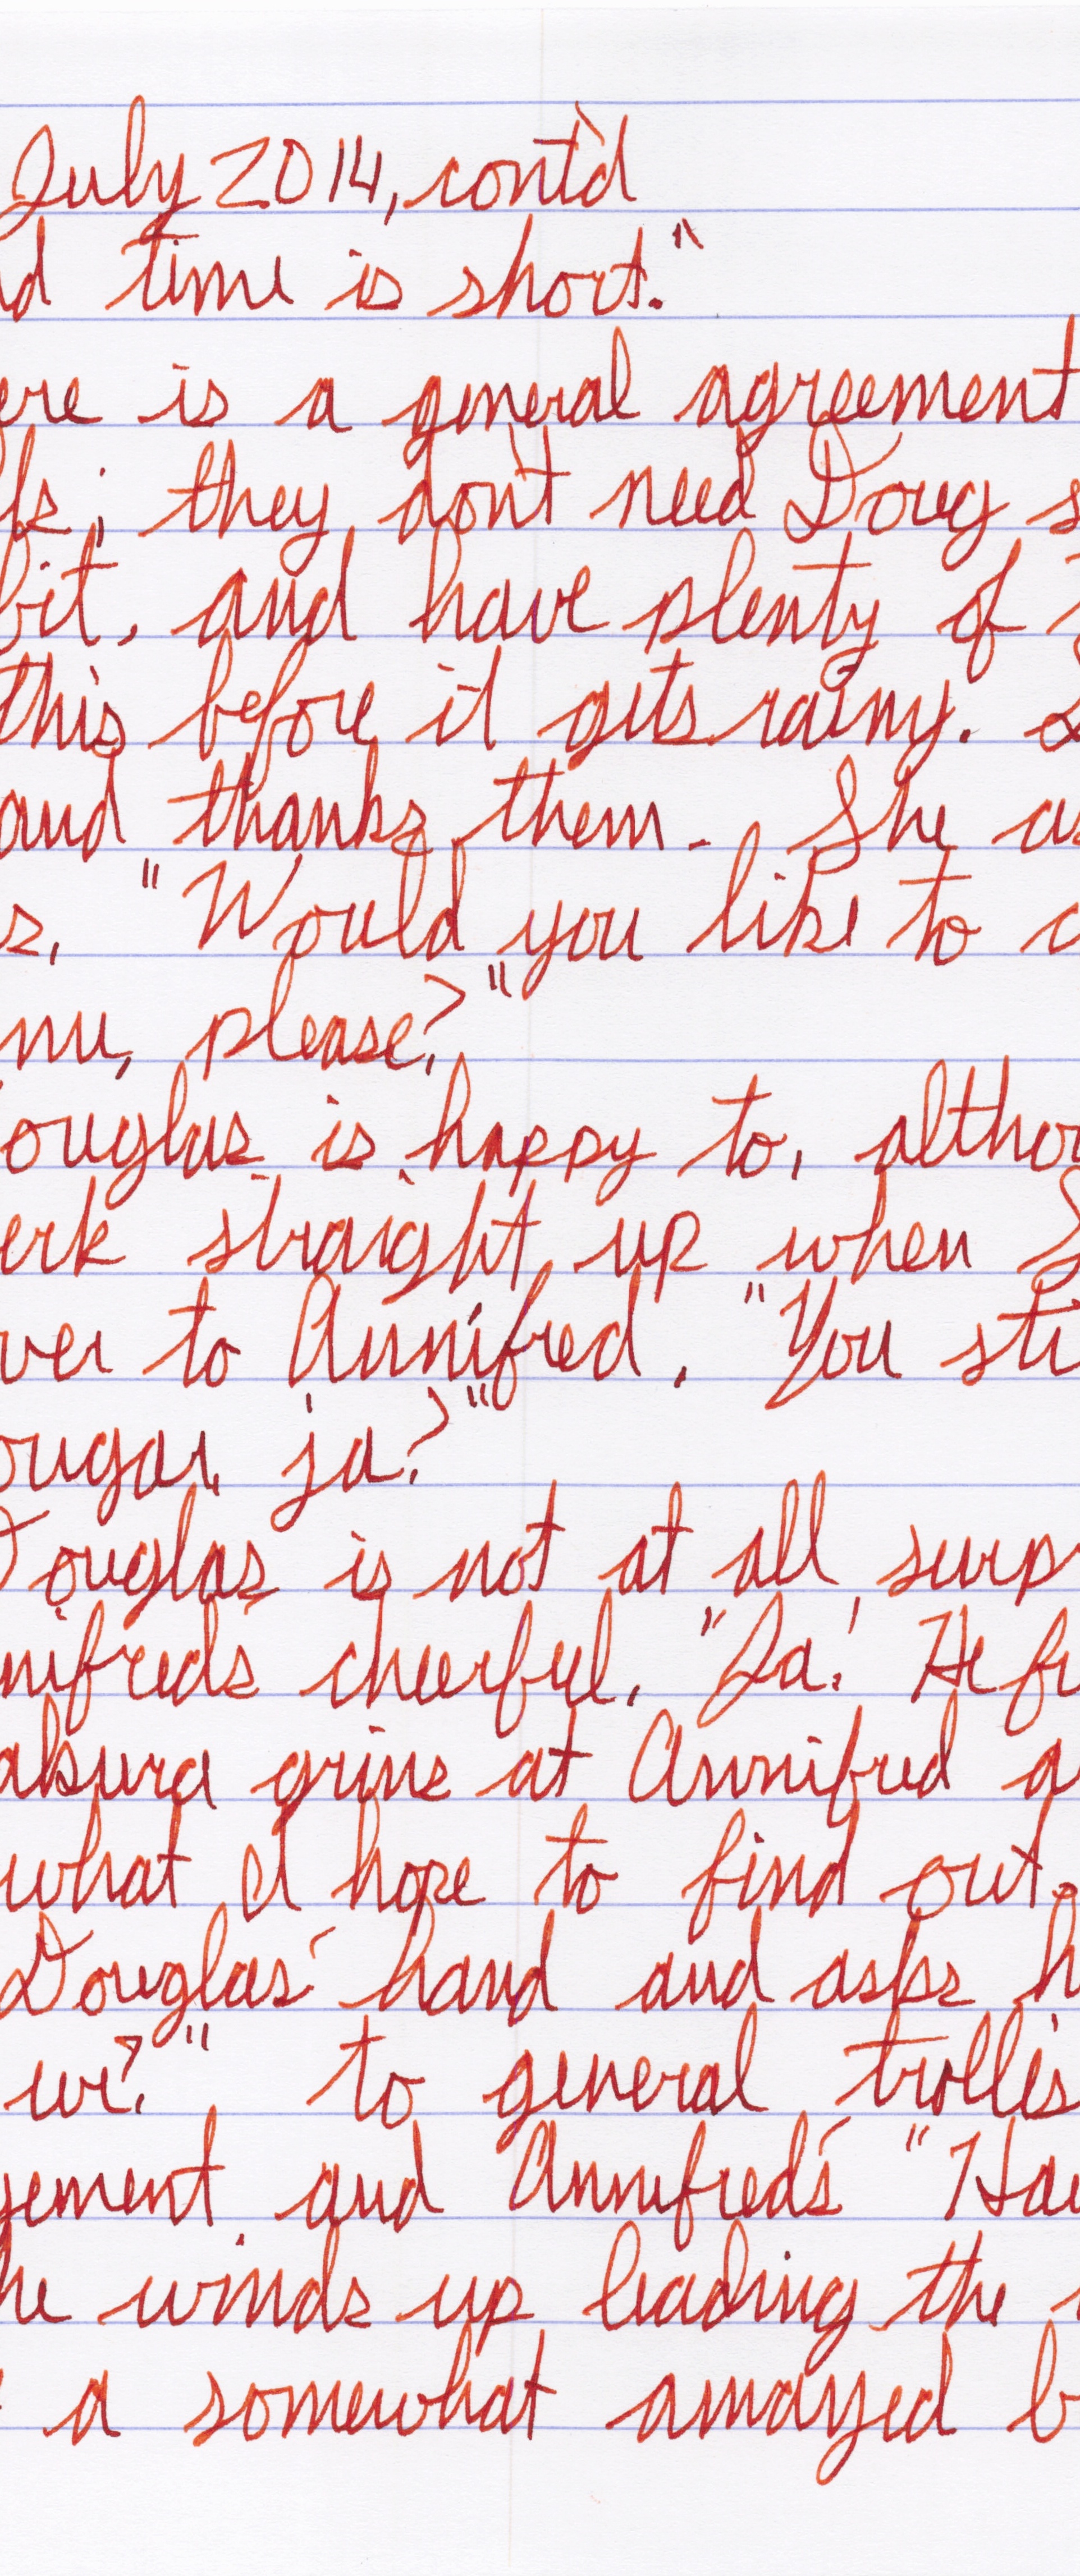 July 2014, cont'd
d time is short."
ere is a general agreement
fs; they don't need Doug s
bit, and have plenty of
this before it gets rainy.
and thanks them. She as
s, "Would you like to c
nu, please?"
ouglas is happy to, althou
erk straight up when S
ver to Annifred, "You sti
ougar, ja?"
Douglas is not at all surp
nifred's cheerful, "Ja! He fu
akura grins at Annifred a
what I hope to find out.
Douglas' hand and asks h
we?" to general trollis
gement and Annifred's "Hau
he winds up leading the
a somewhat amazed b